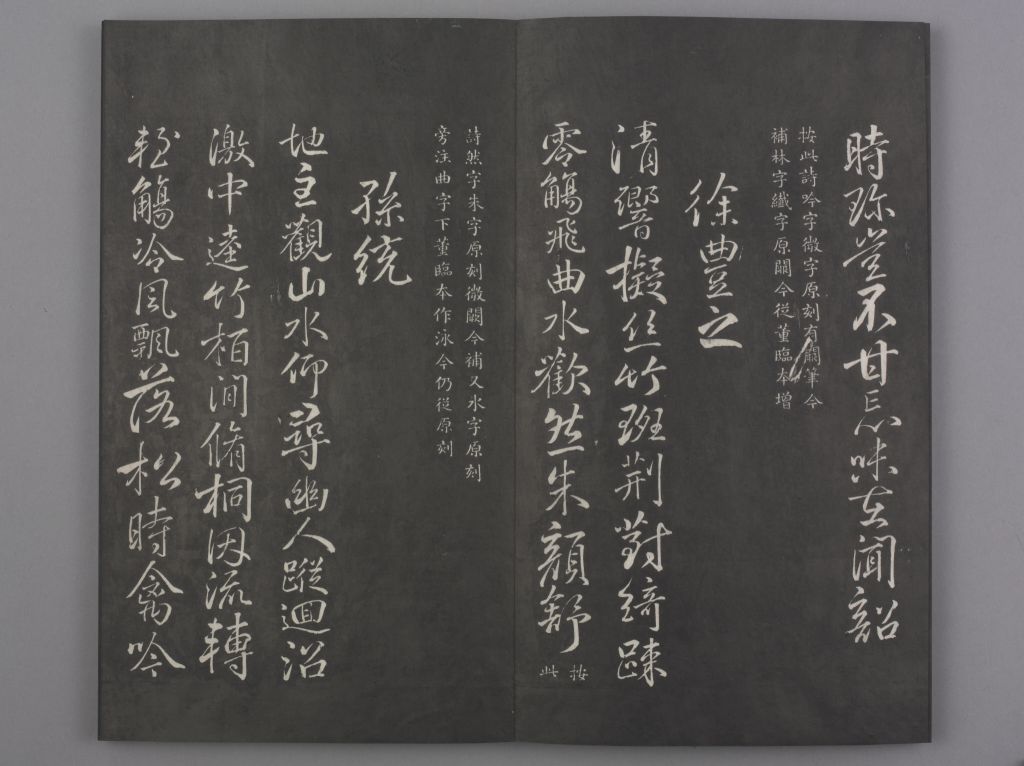 時珎豈不甘忘味在聞韶
按此詩吟字微字原刻有闕筆今
補林字纖字原闕今從董臨本增
徐豐之
清響擬絲竹班荆對綺疎
零觴飛曲水歡然朱顏舒
按此
詩然字朱字原刻微闕今補又水字原刻
旁注曲字下董臨本作泳今仍從原刻
孫統
地主觀山水仰尋幽人蹤迴沼
激中逵竹栢澗脩桐因流轉
輕觴冷風飄落松時禽吟